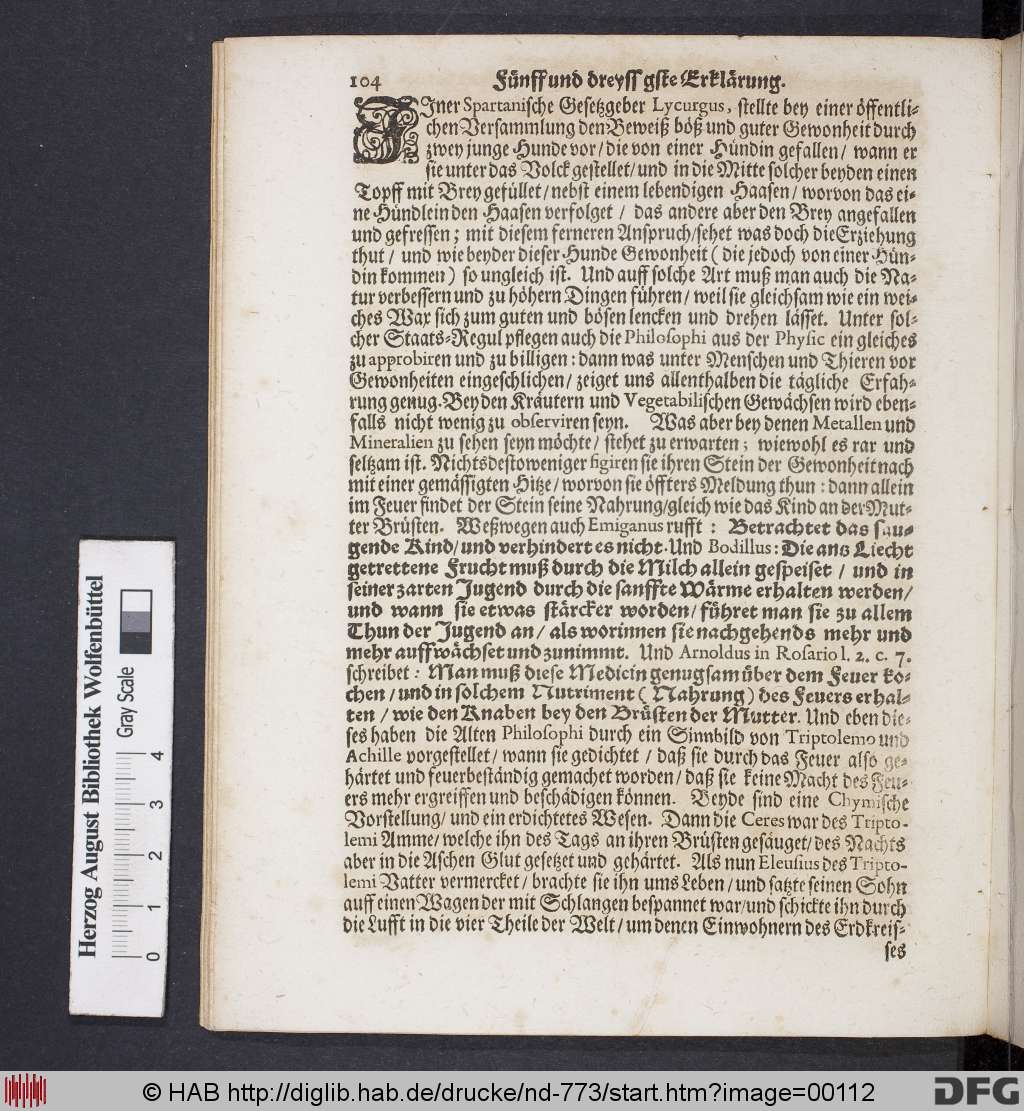 104 Fünff und dreyss gste Erklärung.
JIner Spartanische Gesetzgeber Lycurgus, stellte bey einer öffentli-
chen Versammlung den Beweiß böß und guter Gewonheit durch
zwey junge Hunde vor / die von einer Hündin gefallen / wann er
sie unter das Volck gestellet / und in die Mitte solcher beyden einen
Topff mit Brey gefüllet / nebst einem lebendigen Haasen / worvon das ei-
ne Hündlein den Haasen verfolget / das andere aber den Brey angefallen
und gefressen; mit diesem ferneren Anspruch / sehet was doch die Erziehung
thut / und wie beyder dieser Hunde Gewonheit ( die jedoch von einer Hün-
din kommen ) so ungleich ist. Und auff solche Art muß man auch die Na-
tur verbessern und zu höhern Dingen führen / weil sie gleichsam wie ein wei-
ches Wax sich zum guten und bösen lencken und drehen lässet. Unter sol-
cher Staats-Regul pflegen auch die Philosophi aus der Physic ein gleiches
zu approbiren und zu billigen: dann was unter Menschen und Thieren vor
Gewonheiten eingeschlichen / zeiget uns allenthalben die tägliche Erfah-
rung genug. Bey den Kräutern und Vegetabilischen Gewächsen wird eben-
falls nicht wenig zu observiren seyn. Was aber bey denen Metallen und
Mineralien zu sehen seyn möchte / stehet zu erwarten; wiewohl es rar und
seltzam ist. Nichtsdestoweniger figiren sie ihren Stein der Gewonheit nach
mit einer gemässigten Hitze / worvon sie öffters Meldung thun: dann allein
im Feuer findet der Stein seine Nahrung / gleich wie das Kind an der Mut-
ter Brüsten. Weßwegen auch Emiganus rufft : Betrachtet das sau-
gende Kind / und verhindert es nicht. Und Bodillus: Die ans Liecht
getrettene Frucht muß durch die Milch allein gespeiset / und in
seiner zarten Jugend durch die sanffte Wärme erhalten werden /
und wann sie etwas stärcker worden / führet man sie zu allem
Thun der Jugend an / als worinnen sie nachgehends mehr und
mehr auffwächset und zunimmt. Und Arnoldus in Rosario l. 2. c. 7.
schreibet: Man muß diese Medicin genugsam über dem Feuer ko-
chen / und in solchem Nutriment ( Nahrung ) des Feuers erhal-
ten / wie den Knaben bey den Brüsten der Mutter. Und eben die-
ses haben die Alten Philosophi durch ein Sinnbild von Triptolemo und
Achille vorgestellet / wann sie gedichtet / daß sie durch das Feuer also ge-
härtet und feuerbeständig gemachet worden / daß sie keine Macht des Feu-
ers mehr ergreiffen und beschädigen können. Beyde sind eine Chymische
Vorstellung / und ein erdichtetes Wesen. Dann die Ceres war des Tripto-
lemi Amme / welche ihn des Tags an ihren Brüsten gesäuget / des Nachts
aber in die Aschen Glut gesetzet und gehärtet. Als nun Eleusius des Tripto-
lemi Vatter vermercket / brachte sie ihn ums Leben / und satzte seinen Sohn
auff einen Wagen der mit Schlangen bespannet war / und schickte ihn durch
die Lufft in die vier Theile der Welt / um denen Einwohnern des Erdkreis-
ses
Herzog August Bibliothek Wolfenbüttel
Gray Scale
0 1 2 3 4
© HAB http://diglib.hab.de/drucke/nd-773/start.htm?image=00112
DFG